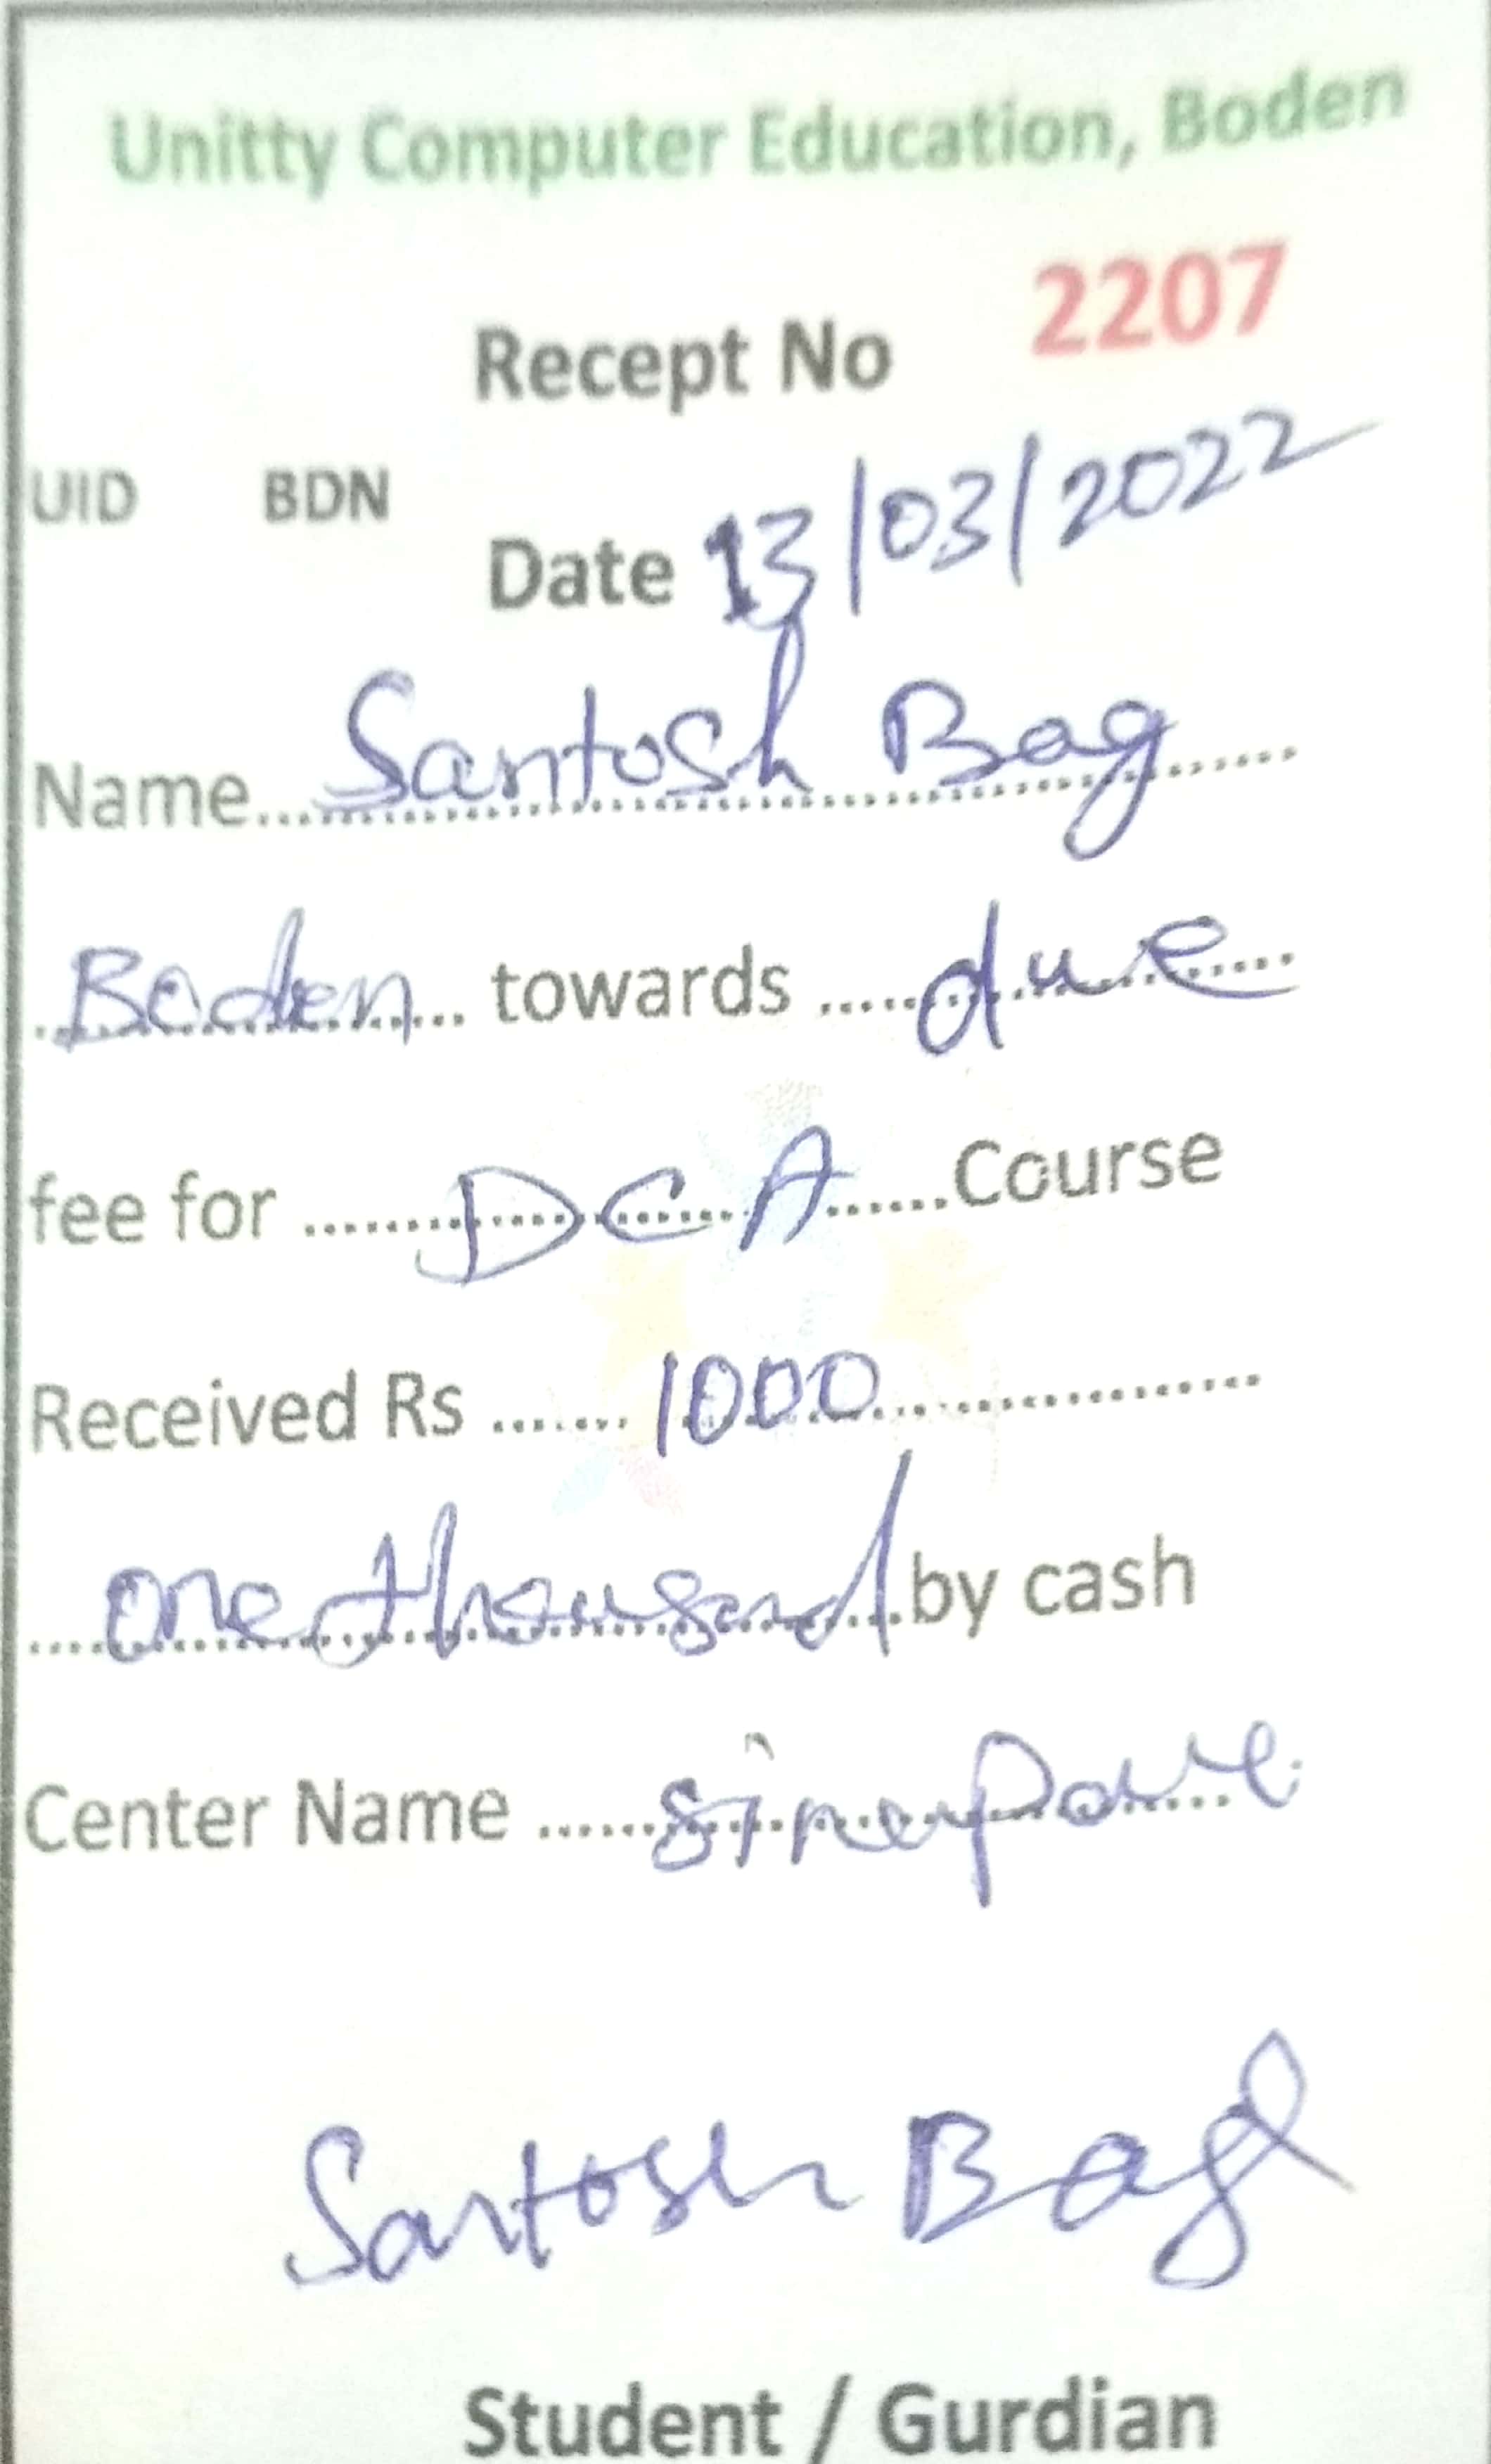 Unitty Computer Education, Boden
Recept No 2207
UID BDN
Date 13/03/2022
Name...Santosh Bag
Boden towards due
fee for DCA Course
Received Rs 1000
one thousand by cash
Center Name
Santosh Bag
Student / Gurdian